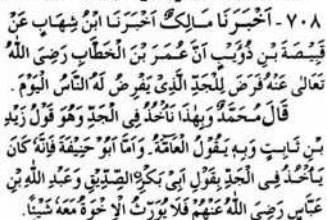 ٧٠٨ - اَخْبَرَنَا مَالِكٌ اَخْبَرَنَا ابْنُ شِهَابٍ عَنْ
قَبِيْصَةَ بْنِ ذُوَيْبٍ اَنَّ عُمَرَ بْنَ الْخَطَّابِ رَضِىَ اللّٰهُ
تَعَالٰى عَنْهُ فَرَضَ لِلْجَدِّ الَّذِىْ يَفْرِضُ لَهُ النَّاسُ الْيَوْمَ .
قَالَ مُحَمَّدٌ وَبِهٰذَا نَأْخُذُ فِى الْجَدِّ وَهُوَ قَوْلُ زَيْدِ
بْنِ ثَابِتٍ وَبِهٖ يَقُوْلُ الْعَامَّةُ . وَاَمَّا اَبُوْ حَنِيْفَةَ فَاِنَّهٗ كَانَ
يَأْخُذُ فِى الْجَدِّ بِقَوْلِ اَبِىْ بَكْرِ الصِّدِّيْقِ وَعَبْدِ اللّٰهِ بْنِ
عَبَّاسٍ رَضِىَ اللّٰهُ عَنْهُمْ فَلَا يُوَرِّثُ الْاِخْوَةَ مَعَهٗ شَيْئًا.